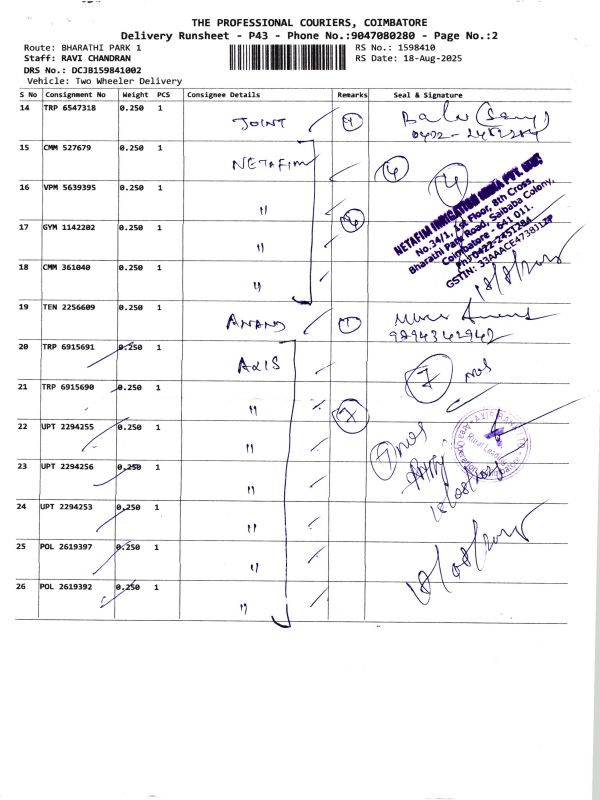 THE PROFESSIONAL COURIERS, COIMBATORE
Delivery Runsheet - P43 - Phone No.:9047080280 - Page No.:2
Route: BHARATHI PARK 1
RS No.: 1598410
Staff: RAVI CHANDRAN
RS Date: 18-Aug-2025
DRS No.: DCJB159841002
Vehicle: Two Wheeler Delivery
S No Consignment No Weight PCS Consignee Details Remarks Seal & Signature
14 TRP 6547318 0.250 1 JOINT 1
15 CMM 527679 0.250 1 NETAFIM 4 4
16 VPM 5639395 0.250 1 "
17 GYM 1142202 0.250 1 " 4
18 CMM 361040 0.250 1 "
NETAFIM IRRIGATION INDIA PVT. LTD.
No.34/1, 1st Floor, 8th Cross,
Bharathi Park Road, Saibaba Colony,
Coimbatore - 641 011.
Ph: 0422-2451284
GSTIN: 33AAACE4738J1ZP
18/8/2025
19 TEN 2256609 0.250 1 ANAND 1
9894342942
20 TRP 6915691 0.250 1 AXIS 7 NOS
21 TRP 6915690 0.250 1 " 7
22 UPT 2294255 0.250 1 "
7 NOS
23 UPT 2294256 0.250 1 "
18/08/2025
24 UPT 2294253 0.250 1 "
25 POL 2619397 0.250 1 "
18/08/2025
26 POL 2619392 0.250 1 "